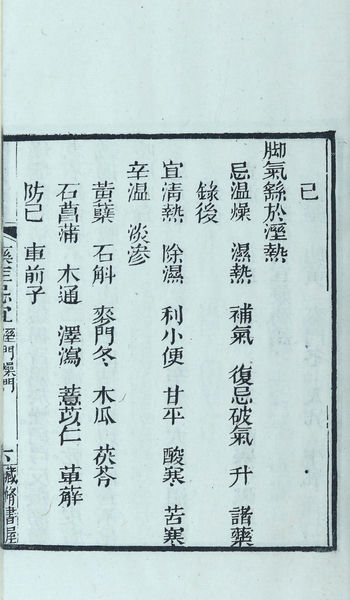 已
脚氣繇於溼熱
忌温燥 濕熱 補氣 復忌破氣 升 諸藥
錄後
宜清熱 除濕 利小便 甘平 酸寒 苦寒
辛温 淡滲
黃蘗 石斛 麥門冬 木瓜 茯苓
石菖蒲 木通 澤瀉 薏苡仁 萆薢
防已 車前子
藥症忌宜 溼門燥門 六 藏脩書屋